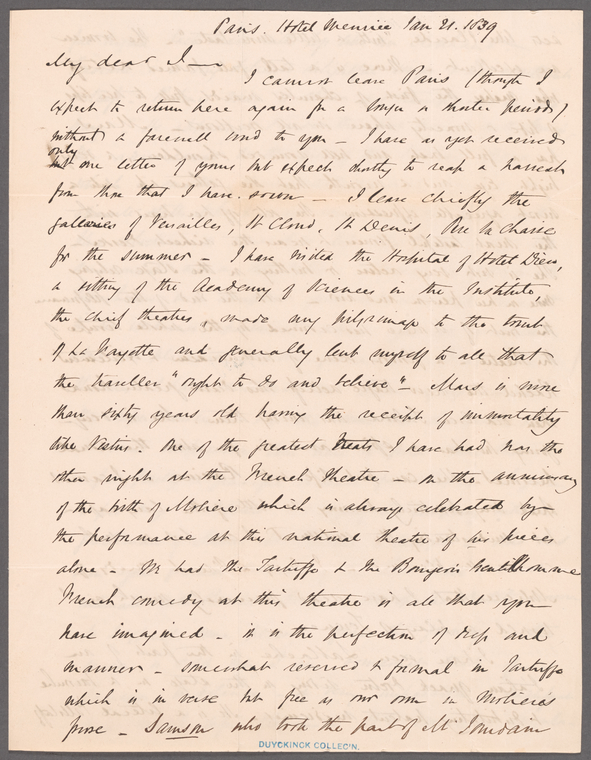 Paris. Hotel Meurice Jan 21. 1839
My dear J——
I cannot leave Paris (though I
expect to return here again for a longer or shorter period)
without a farewell word to you – I have as yet received
only
but one letter of yours but expect shortly to reap a harvest
from those that I have sown – I leave chiefly the
galleries of Versailles, St Cloud, St Denis, Pere la Chaise
for the summer – I have visited the Hospital of Hotel Dieu,
a sitting of the Academy of Sciences in the Institute,
the chief theatres, made my pilgrimage to the tomb
of La Fayette and generally lent myself to all that
the traveller "ought to do and believe" – Mars is more
than sixty years old having the receipt of immortality
like Vestris. One of the greatest treats I have had was the
other night at the French Theatre – on the anniversary
of the birth of Moliere which is always celebrated by
the performance at this national theatre of his pieces
alone – We had the Tartuffe & the Bourgeois Gentilhomme
French comedy at this theatre is all that you
have imagined – it is the perfection of dress and
manner – somewhat reserved & formal in Tartuffe
which is in verse but free as our own in Moliere's
prose – Samson who took the part of Mr Jourdain
DUYCKINCK COLLEC'N.